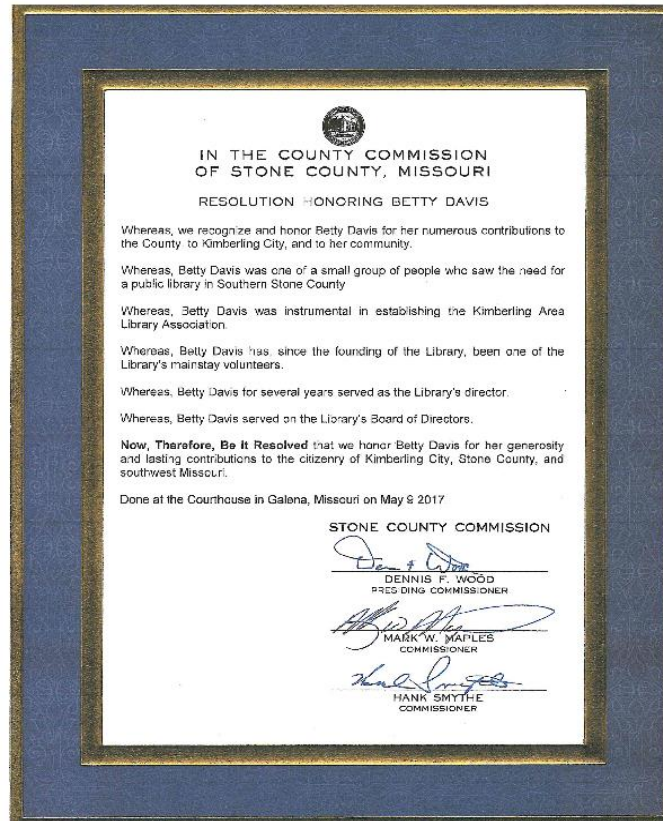 IN THE COUNTY COMMISSION
OF STONE COUNTY, MISSOURI
RESOLUTION HONORING BETTY DAVIS
Whereas, we recognize and honor Betty Davis for her numerous contributions to
the County, to Kimberling City, and to her community.
Whereas, Betty Davis was one of a small group of people who saw the need for
a public library in Southern Stone County
Whereas, Betty Davis was instrumental in establishing the Kimberling Area
Library Association.
Whereas, Betty Davis has, since the founding of the Library, been one of the
Library's mainstay volunteers.
Whereas, Betty Davis for several years served as the Library's director.
Whereas, Betty Davis served on the Library's Board of Directors.
Now, Therefore, Be it Resolved that we honor Betty Davis for her generosity
and lasting contributions to the citizenry of Kimberling City, Stone County, and
southwest Missouri.
Done at the Courthouse in Galena, Missouri on May 9 2017
STONE COUNTY COMMISSION
DENNIS F. WOOD
PRESIDING COMMISSIONER
MARK W. MAPLES
COMMISSIONER
HANK SMYTHE
COMMISSIONER